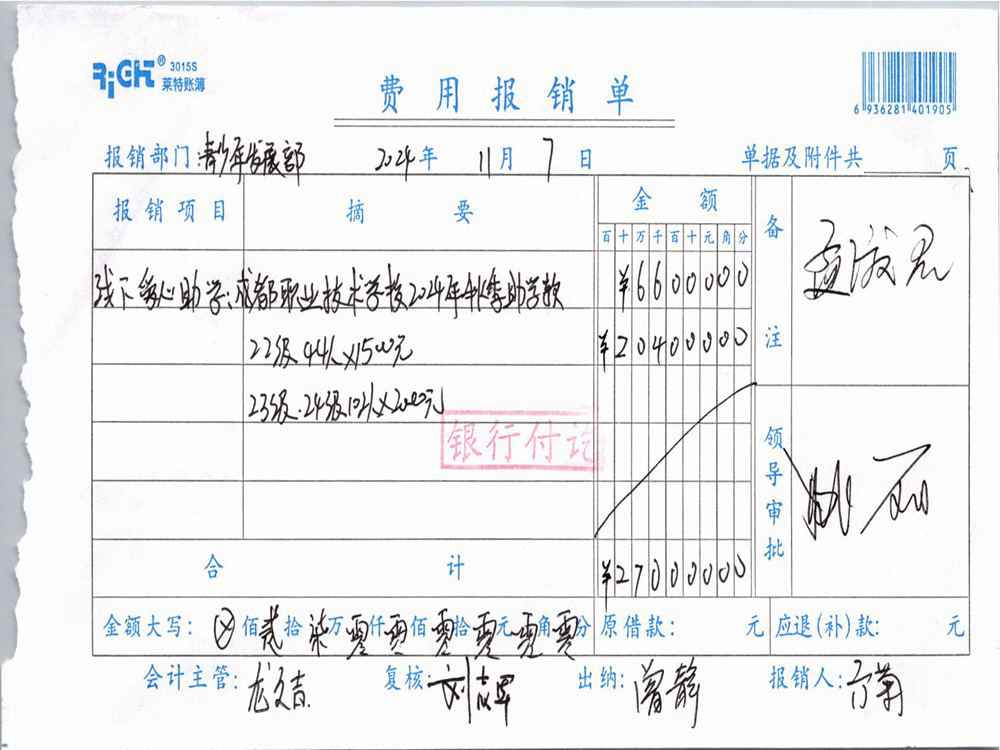 RiGHT® 3015S
莱特账簿
费用报销单
6 936281 401905
报销部门:青少年发展部 2024年 11月 7日 单据及附件共 页
报销项目 摘要 金额 备注
百十万千百十元角分
线下爱心助学:成都职业技术学校2024年秋季助学款 ¥6600000
22级 44人×1500元 ¥20400000
23级.24级102人×2000元
银行付讫
领导审批 姚丽
合计 ¥27000000
金额大写: ⊗佰贰拾柒万零仟零佰零拾零元零角零分 原借款: 元 应退(补)款: 元
会计主管: 复核: 出纳:曾静 报销人: